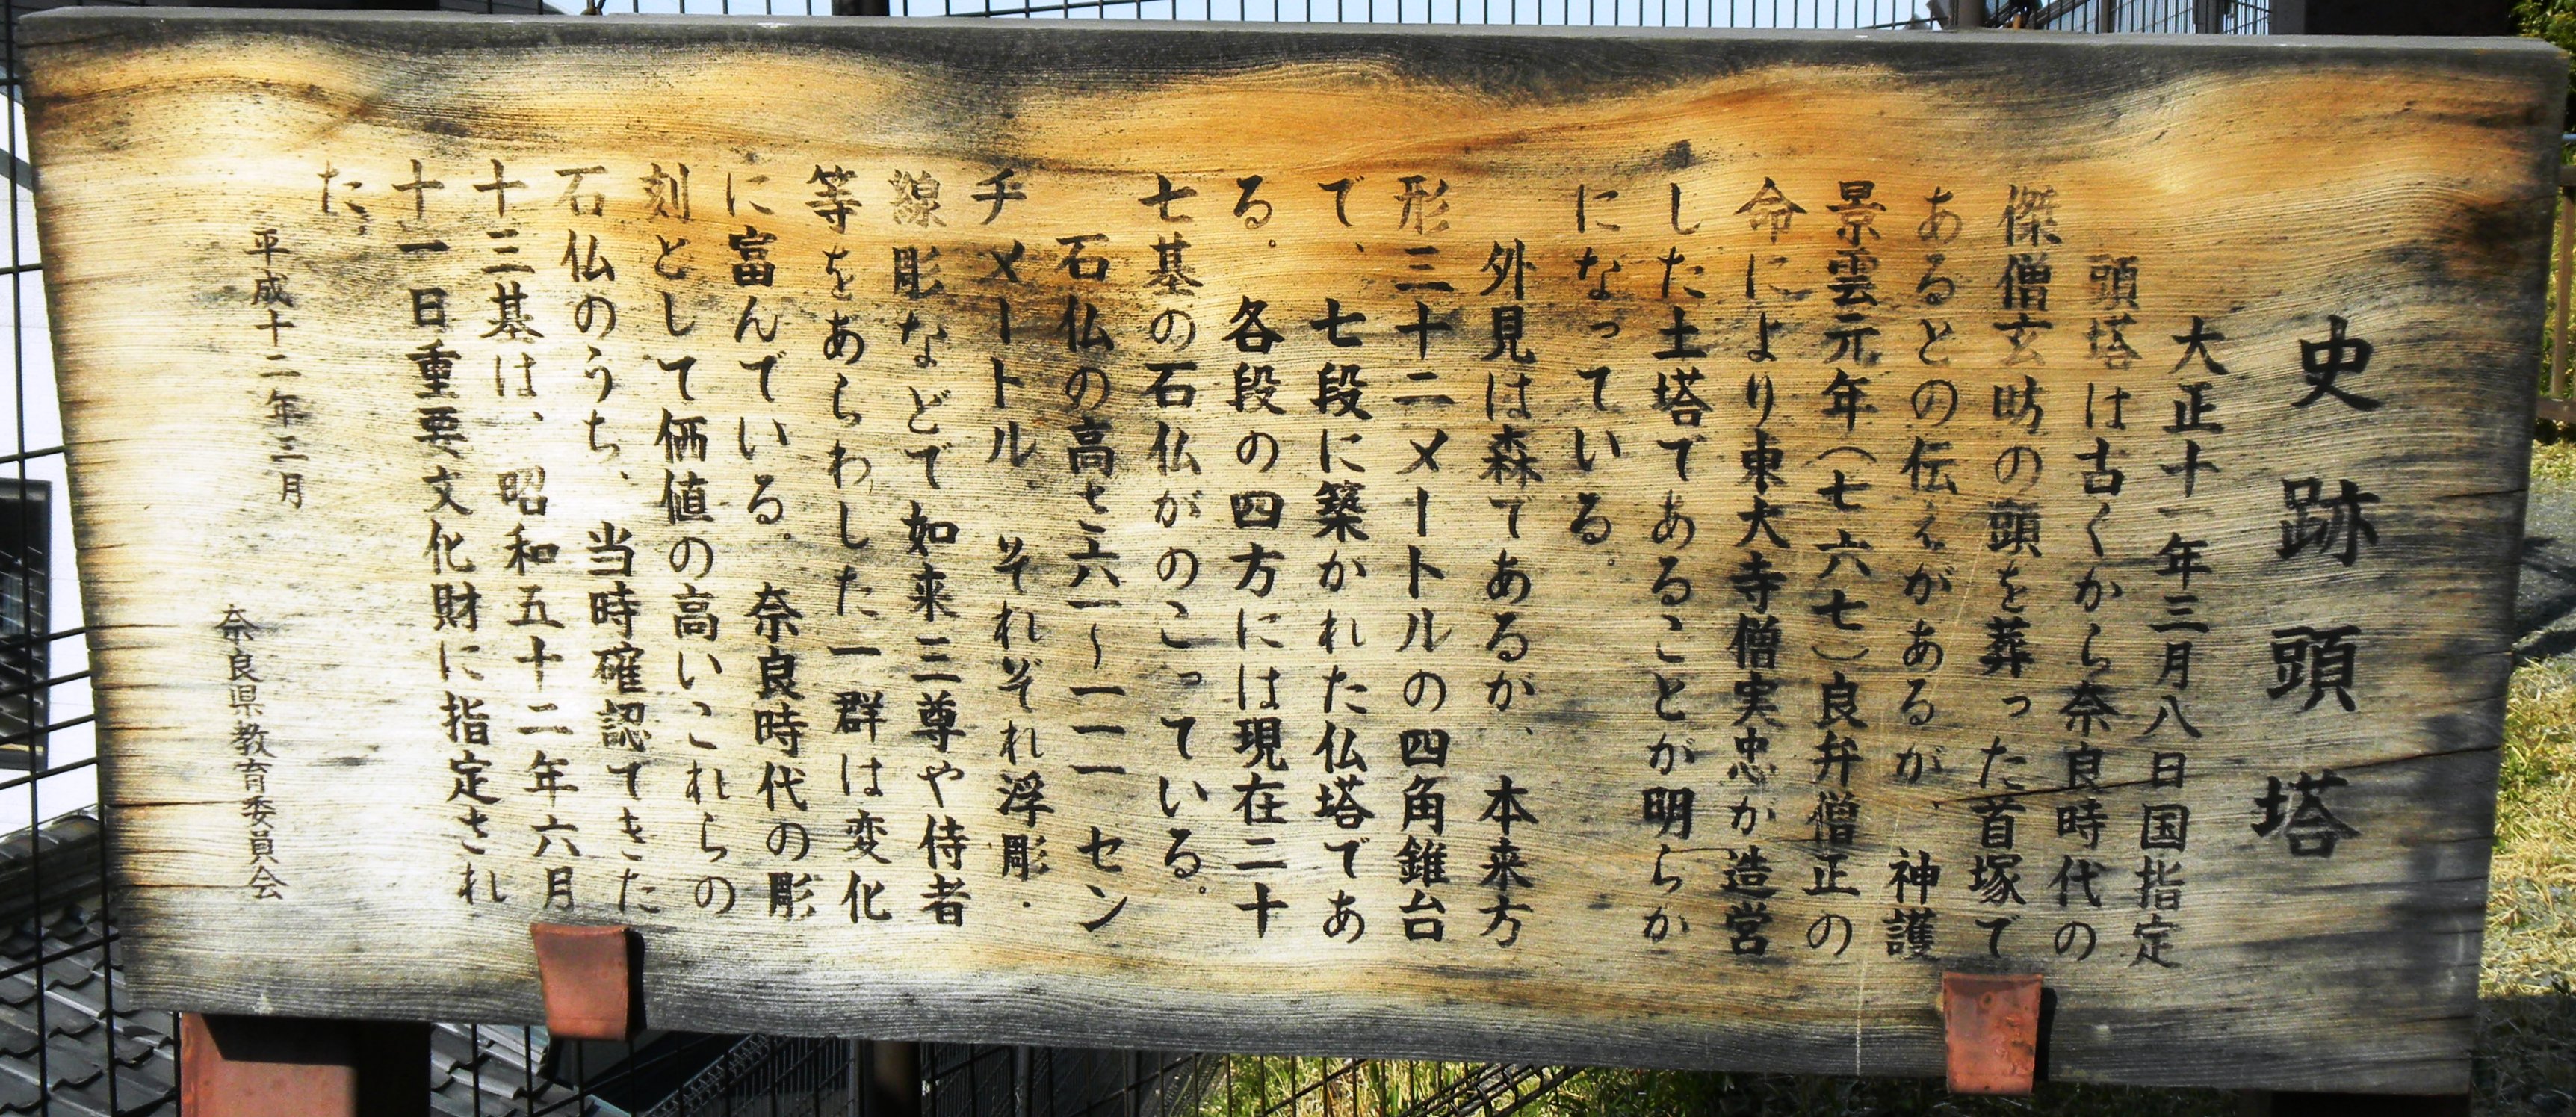 史跡頭塔
大正十一年三月八日国指定
頭塔は古くから奈良時代の
傑僧玄昉の頭を葬った首塚で
あるとの伝えがあるが、神護
景雲元年(七六七)良弁僧正の
命により東大寺僧実忠が造営
した土塔であることが明らか
になっている。
外見は森であるが、本来方
形三十二メートルの四角錐台
で、七段に築かれた仏塔であ
る。各段の四方には現在二十
七基の石仏がのこっている。
石仏の高さ六一〜一一一セン
チメートル それぞれ浮彫・
線彫などで如来三尊や侍者
等をあらわした一群は変化
に富んでいる。奈良時代の彫
刻として価値の高いこれらの
石仏のうち、当時確認できた
十三基は、昭和五十二年六月
十一日重要文化財に指定され
た。
平成十二年三月
奈良県教育委員会